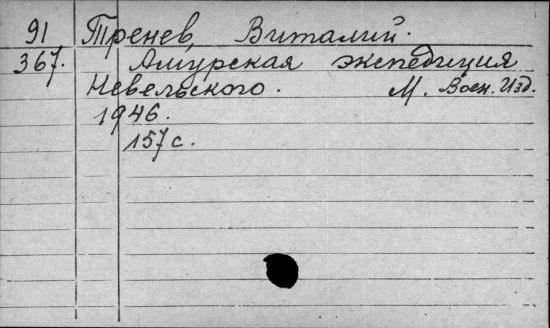 91 Тренев, Виталий.
367. Амурская экспедиция
Невельского. М. Воен. Изд.
1946.
157 с.